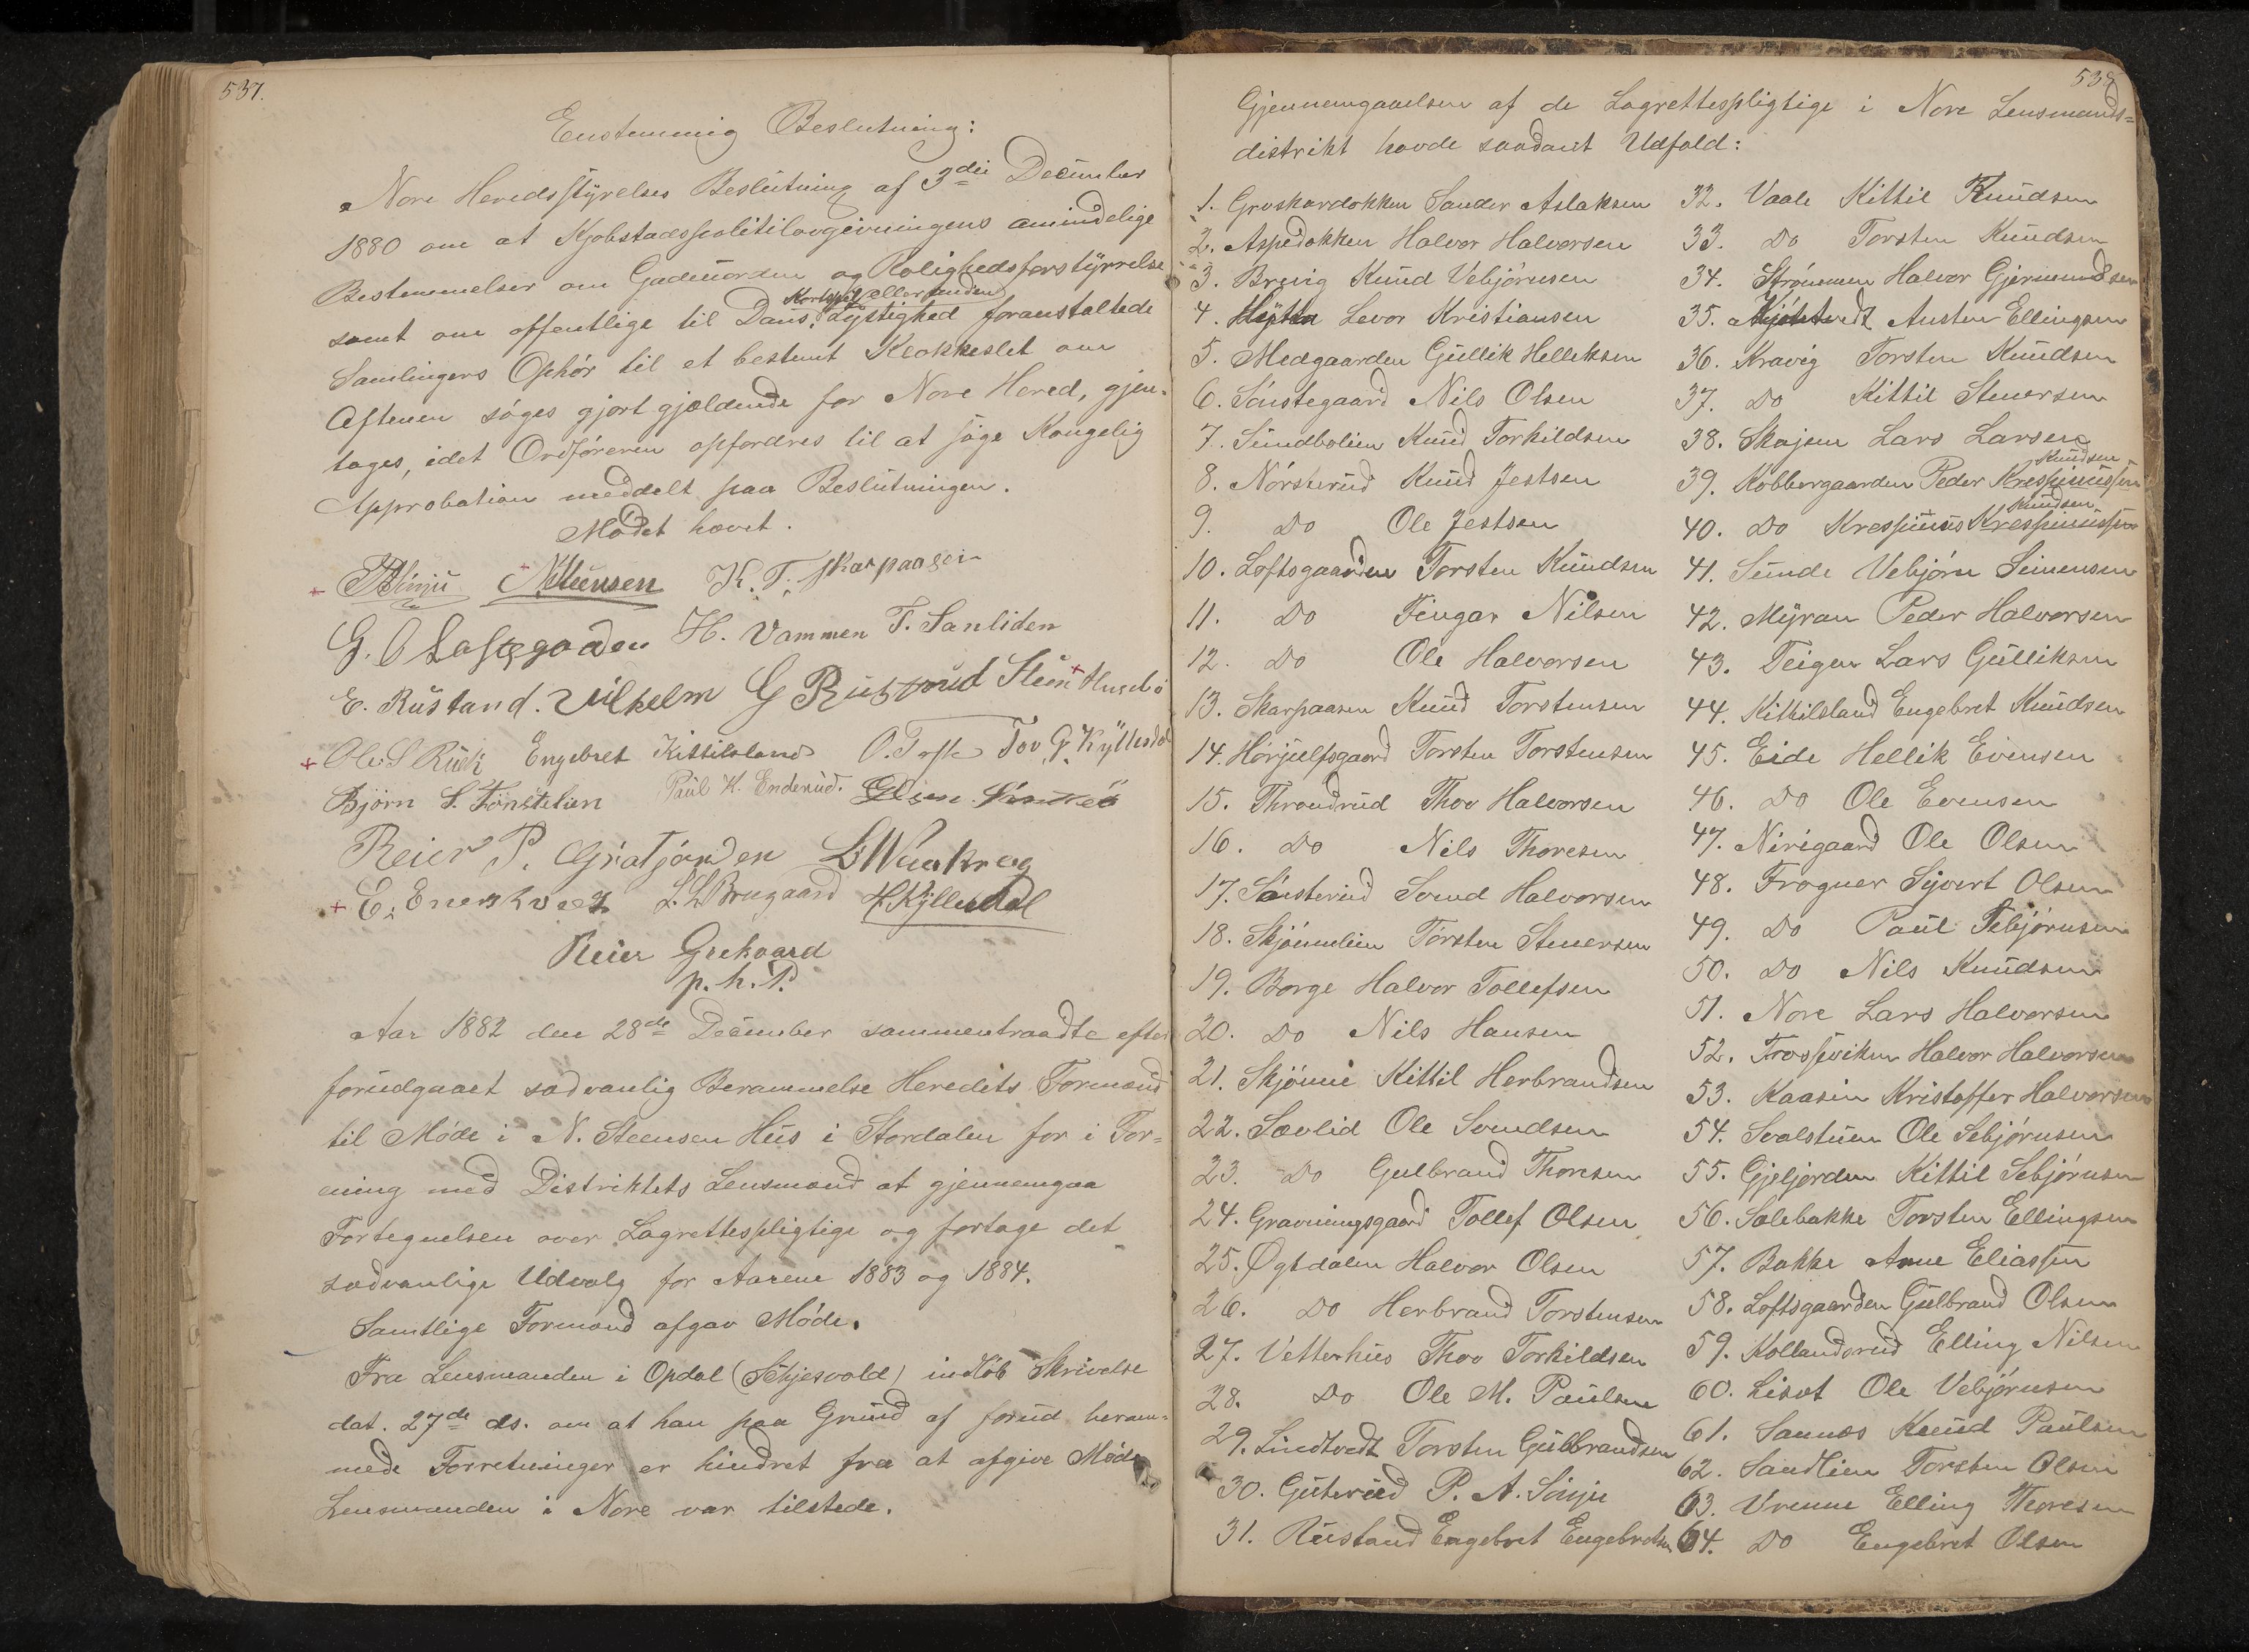 537.
Enstemmig Beslutning:
Nore Heredsstyrelses Beslutning af 3die December
1880 om at Kjøbstadspolitilovgivningens amindelige
Bestemmelser om Gadeuorden og Rolighedsforstyrrelse
Kortspil eller anden
samt om offentlige til Dans, Lystighed foranstaltede
Samlingers Ophør til et bestemt Klokkeslet om
Aftenen søges gjort gjældende for Nore Hered, gjen-
tages, idet Ordføreren opfordres til at søge Kongelig
Approbation meddelt paa Beslutningen.
Mødet hævet.
NSteensen K. T. Skarpaasen
G. O H. Vammen T. Sanliden
E. Rustand. Vilhelm G Stein Husebö
Ole S Engebret Kittilsland O. Tov G.
Björn S. Tönstelien Paul H. Enderud.
Reier P.
E. L. L. Brugaard H. Kjlledal
Reier
p. h. P.
Aar 1882 den 28de December sammentraadte efter
forudgaaet sædvanlig Berammelse Heredets Formænd
til Møde i N. Steensen Hus i Stordalen for i For-
ening med Distriktets Lensmænd at gjennemgaa
Fortegnelsen over Lagrettespligtige og fortage det
sædvanlige Udvalg for Aarene 1883 og 1884.
Samtlige Formænd afgav Møde.
Fra Lensmanden i Opdal indløb Skrivelse
dat. 27de ds. om at han paa Grund af forud beram-
mede Forretninger er hindret fra at afgive Møde
Lensmanden i Nore var tilstede.
538
Gjennemgaaelsen af de Lagrettespligtige i Nore Lensmands-
distrikt havde saadant Udfald:
1. Groskardokken Sander Aslaksen
2. Aspedokken Halvor Halvorsen
3. Brevig Knud Vebjörnsen
4. Levor Kristiansen
5. Medgaarden Gullik Helliksen
6. Sönstegaard Nils Olsen
7. Sundbolien Knud Torkildsen
8. Nörsterud Knud Jestsen
9. Do Ole Jestsen
10. Loftsgaarden Torsten Knudsen
11. Do Fingar Nilsen
12. Do Ole Halvorsen
13. Skarpaasen Knud Torstensen
14. Hörjulfsgaard Torsten Torstensen
15. Throndrud Thov Halvorsen
16. Do Nils Thoresen
17. Sönsterud Svend Halvorsen
18. Skjönnelien Torsten Stenersen
19. Borge Halvor Tollefsen
20. Do Nils Hansen
21. Skjönne Kittil Herbrandsen
22. Sævlid Ole Svendsen
23. Do Gulbrand Thoresen
24. Gravningsgaard Tollef Olsen
25. Øgtdalen Halvor Olsen
26. Do Herbrand Torstensen
27. Vetterhus Thov Torkildsen
28. Do Ole M. Paulsen
29. Lindtvedt Torsten Gulbrandsen
30. Guterud P. A. Sönju
31. Rustand Engebret Engebretsen
32. Vaale Kittil Knudsen
33. Do Torsten Knudsen
34. Strømmen Halvor Gjermundsen
35. Austen Ellingsen
36. Kravig Torsten Knudsen
37. Do Kittil Stenersen
38. Skajem Lars Larsen
Knudsen
39. Kobbergaarden Peder Krespinussen
Knudsen
40. Do Krespinus Krespinussen
41. Sunde Vebjörn Simensen
42. Myran Peder Halvorsen
43. Teigen Lars Gulliksen
44. Kittilsland Engebret Knudsen
45. Eide Hellik Evensen
46. Do Ole Evensen
47. Nirigaard Ole Olsen
48. Frogner Syvert Olsen
49. Do Paul Tebjörnsen
50. Do Nils Knudsen
51. Nore Lars Halvorsen
52. Frossviken Halvor Halvorsen
53. Kaasin Kristoffer Halvorsen
54. Svalstuen Ole Sebjörnsen
55. Gjeljorden Kittil Sebjörnsen
56. Solebakke Torsten Ellingsen
57. Bakke Arne Eliassen
58. Loftsgaarden Gulbrand Olsen
59. Kollandsrud Elling Nilsen
60. Lisæt Ole Vebjörnsen
61. Sannæs Knud Paulsen
62. Sandlien Torsten Olsen
63. Vrenne Elling Thoresen
64. Do Engebret Olsen